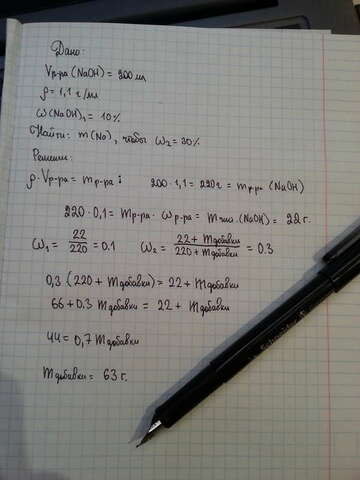 Дано:
Vр-ра (NaOH) = 200 мл
ρ = 1,1 г/мл
ω(NaOH)₁ = 10%
Найти: m(No), чтобы ω₂ = 30%
Решение:
ρ · Vр-ра = mр-ра; 200 · 1,1 = 220 г = mр-ра (NaOH)
220 · 0,1 = mр-ра · ωр-ра = mчист.(NaOH) = 22 г.
ω₁ = 22/220 = 0.1 ω₂ = 22 + mдобавки/220 + mдобавки = 0.3
0,3 (220 + mдобавки) = 22 + mдобавки
66 + 0.3 mдобавки = 22 + mдобавки
44 = 0,7 mдобавки
mдобавки = 63 г.
Schneider